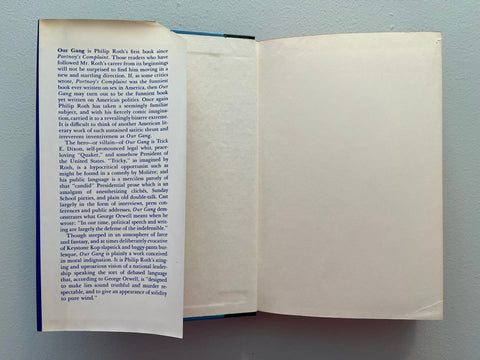 Our Gang is Philip Roth's first book since
Portnoy's Complaint. Those readers who have
followed Mr. Roth's career from its beginnings
will not be surprised to find him moving in a
new and startling direction. If, as some critics
wrote, Portnoy's Complaint was the funniest
book ever written on sex in America, then Our
Gang may turn out to be the funniest book
yet written on American politics. Once again
Philip Roth has taken a seemingly familiar
subject, and with his fiercely comic imagina-
tion, carried it to a revealingly bizarre extreme.
It is difficult to think of another American lit-
erary work of such sustained satiric thrust and
irreverent inventiveness as Our Gang.
The hero—or villain—of Our Gang is Trick
E. Dixon, self-pronounced legal whiz, peace-
loving "Quaker," and somehow President of
the United States. "Tricky," as imagined by
Roth, is a hypocritical opportunist such as
might be found in a comedy by Molière; and
his public language is a merciless parody of
that "candid" Presidential prose which is an
amalgam of anesthetizing clichés, Sunday
School pieties, and plain old double-talk. Cast
largely in the form of interviews, press con-
ferences and public addresses, Our Gang dem-
onstrates what George Orwell meant when he
wrote: "In our time, political speech and writ-
ing are largely the defense of the indefensible."
Though steeped in an atmosphere of farce
and fantasy, and at times deliberately evocative
of Keystone Kop slapstick and baggy-pants bur-
lesque, Our Gang is plainly a work conceived
in moral indignation. It is Philip Roth's sting-
ing and uproarious vision of a national leader-
ship speaking the sort of debased language
that, according to George Orwell, is "designed
to make lies sound truthful and murder re-
spectable, and to give an appearance of solidity
to pure wind."